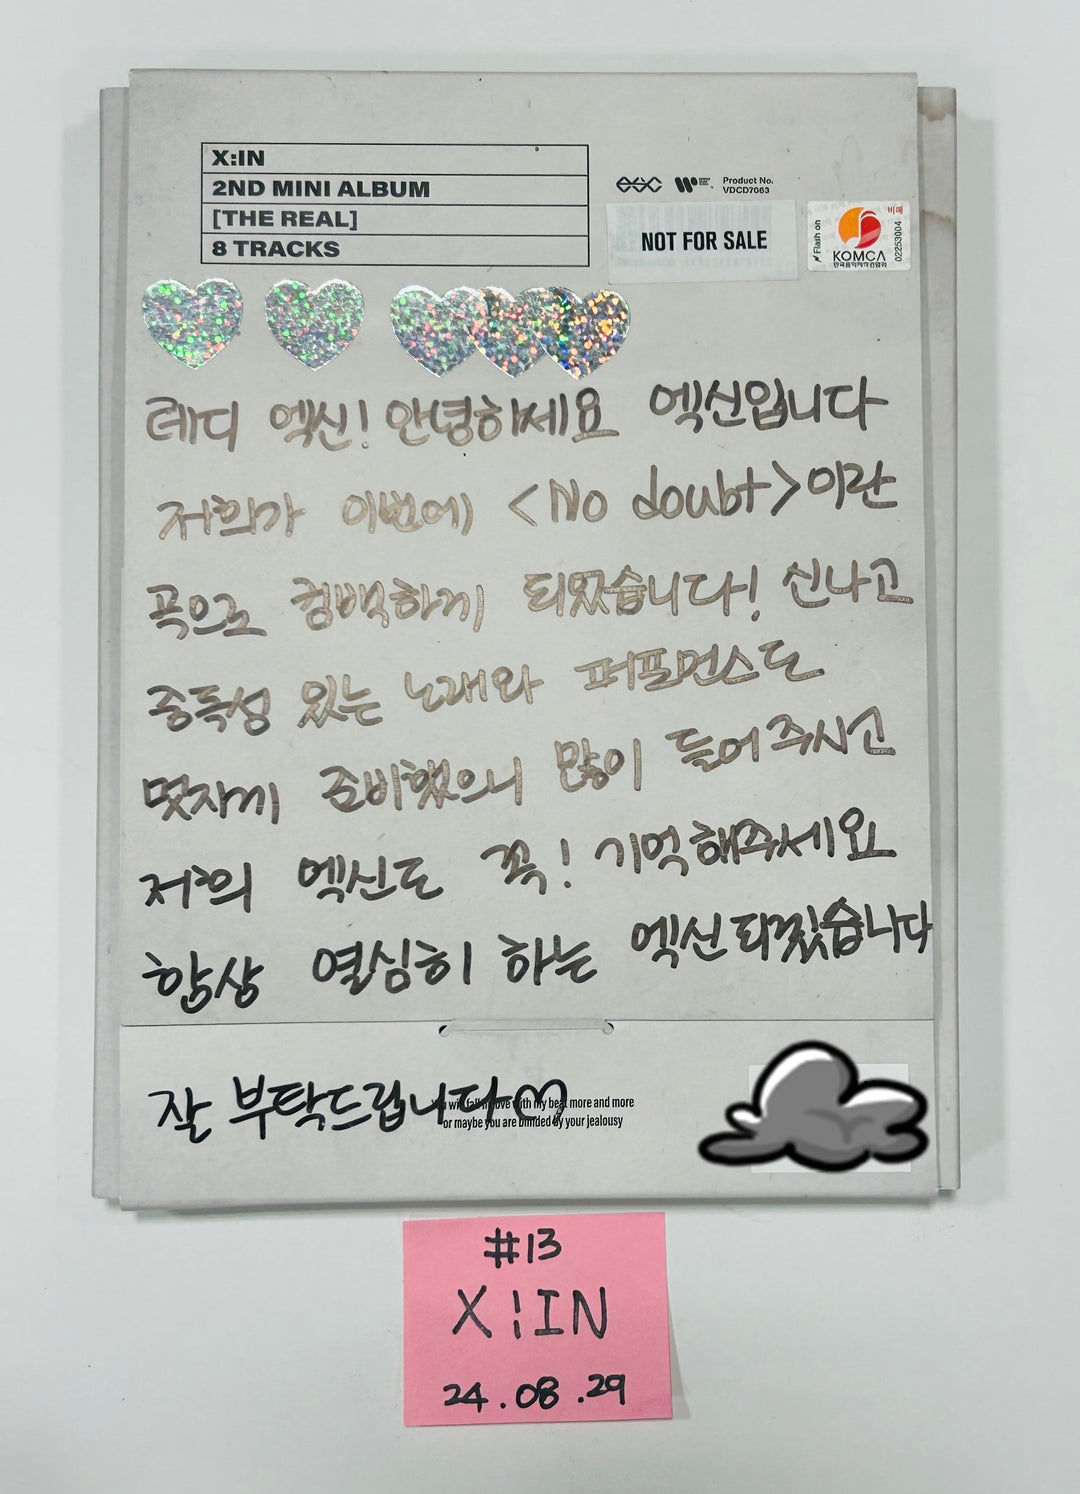 X:IN
2ND MINI ALBUM
[THE REAL]
8 TRACKS
Product No.
VDCD7063
NOT FOR SALE
Flash on
비매
KOMCA
한국음악저작권협회
02253004
레디 엑신! 안녕하세요 엑신입니다
저희가 이번에 <No doubt>이란
곡으로 컴백하게 되었습니다! 신나고
중독성 있는 노래와 퍼포먼스도
멋지게 준비했으니 많이 들어주시고
저희 엑신도 꼭! 기억해주세요
항상 열심히 하는 엑신 되겠습니다
잘 부탁드립니다♡
You will fall in love with my beat more and more
or maybe you are blinded by your jealousy
#13
X:IN
24.08.29